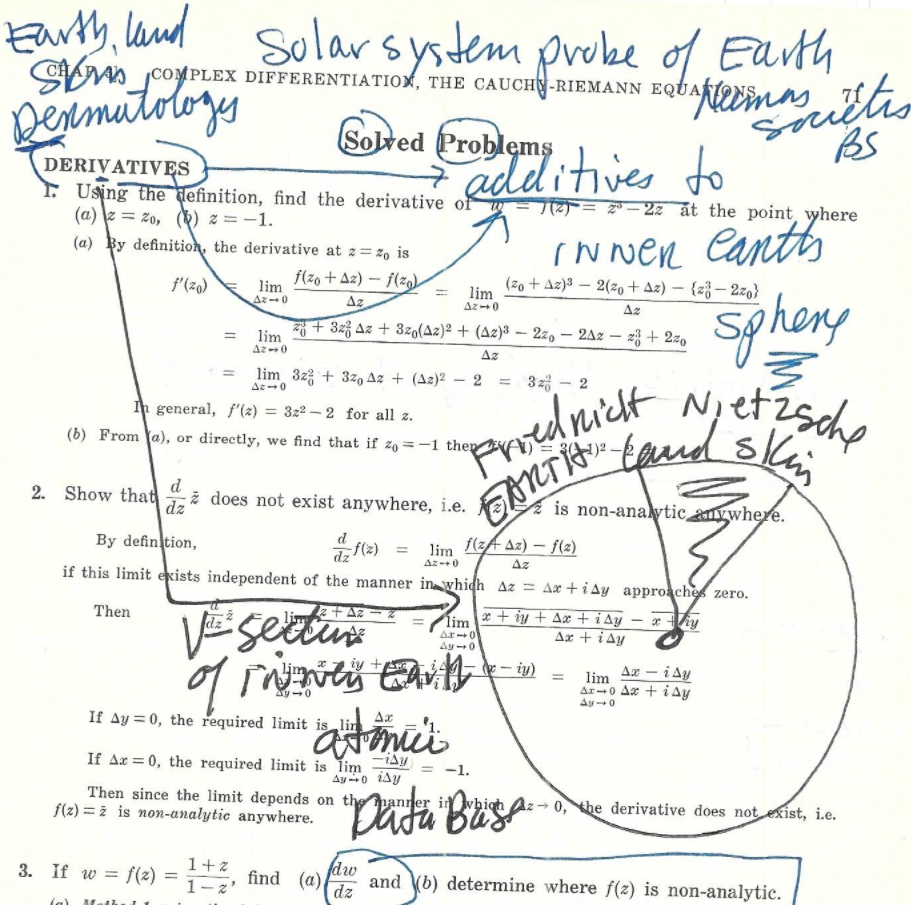 Earth land Solar system probe of Earth
Skin
CHAP. 3] COMPLEX DIFFERENTIATION, THE CAUCHY-RIEMANN EQUATIONS 71
Dermatology
societies
BS
Solved Problems
DERIVATIVES
additives to
1. Using the definition, find the derivative of w = f(z) = z³ − 2z at the point where
(a) z = z₀, (b) z = −1.
(a) By definition, the derivative at z = z₀ is
inner earths
f′(z₀) = lim_{Δz→0} [f(z₀ + Δz) − f(z₀)]/Δz = lim_{Δz→0} [(z₀ + Δz)³ − 2(z₀ + Δz) − {z₀³ − 2z₀}]/Δz
sphere
= lim_{Δz→0} [z₀³ + 3z₀² Δz + 3z₀(Δz)² + (Δz)³ − 2z₀ − 2Δz − z₀³ + 2z₀]/Δz
= lim_{Δz→0} 3z₀² + 3z₀ Δz + (Δz)² − 2 = 3z₀² − 2
In general, f′(z) = 3z² − 2 for all z.
Friedrich Nietzsche
(b) From (a), or directly, we find that if z₀ = −1 then f′(−1) = 3(−1)² − 2
EARTH land skin
2. Show that d/dz z̄ does not exist anywhere, i.e. f(z) = z̄ is non-analytic anywhere.
By definition, d/dz f(z) = lim_{Δz→0} [f(z + Δz) − f(z)]/Δz
if this limit exists independent of the manner in which Δz = Δx + i Δy approaches zero.
Then d/dz z̄ = lim_{Δz→0} [z + Δz − z]/Δz = lim_{Δx→0 Δy→0} [x + iy + Δx + i Δy − x + iy]/[Δx + i Δy]
V-section
of inner Earth
= lim_{Δx→0 Δy→0} [x − iy + Δx − i Δy − (x − iy)]/[Δx + i Δy] = lim_{Δx→0 Δy→0} [Δx − i Δy]/[Δx + i Δy]
If Δy = 0, the required limit is lim_{Δx→0} Δx/Δx = 1.
atomic
If Δx = 0, the required limit is lim_{Δy→0} −iΔy/iΔy = −1.
Then since the limit depends on the manner in which Δz → 0, the derivative does not exist, i.e.
Data Base
f(z) = z̄ is non-analytic anywhere.
3. If w = f(z) = (1 + z)/(1 − z), find (a) dw/dz and (b) determine where f(z) is non-analytic.